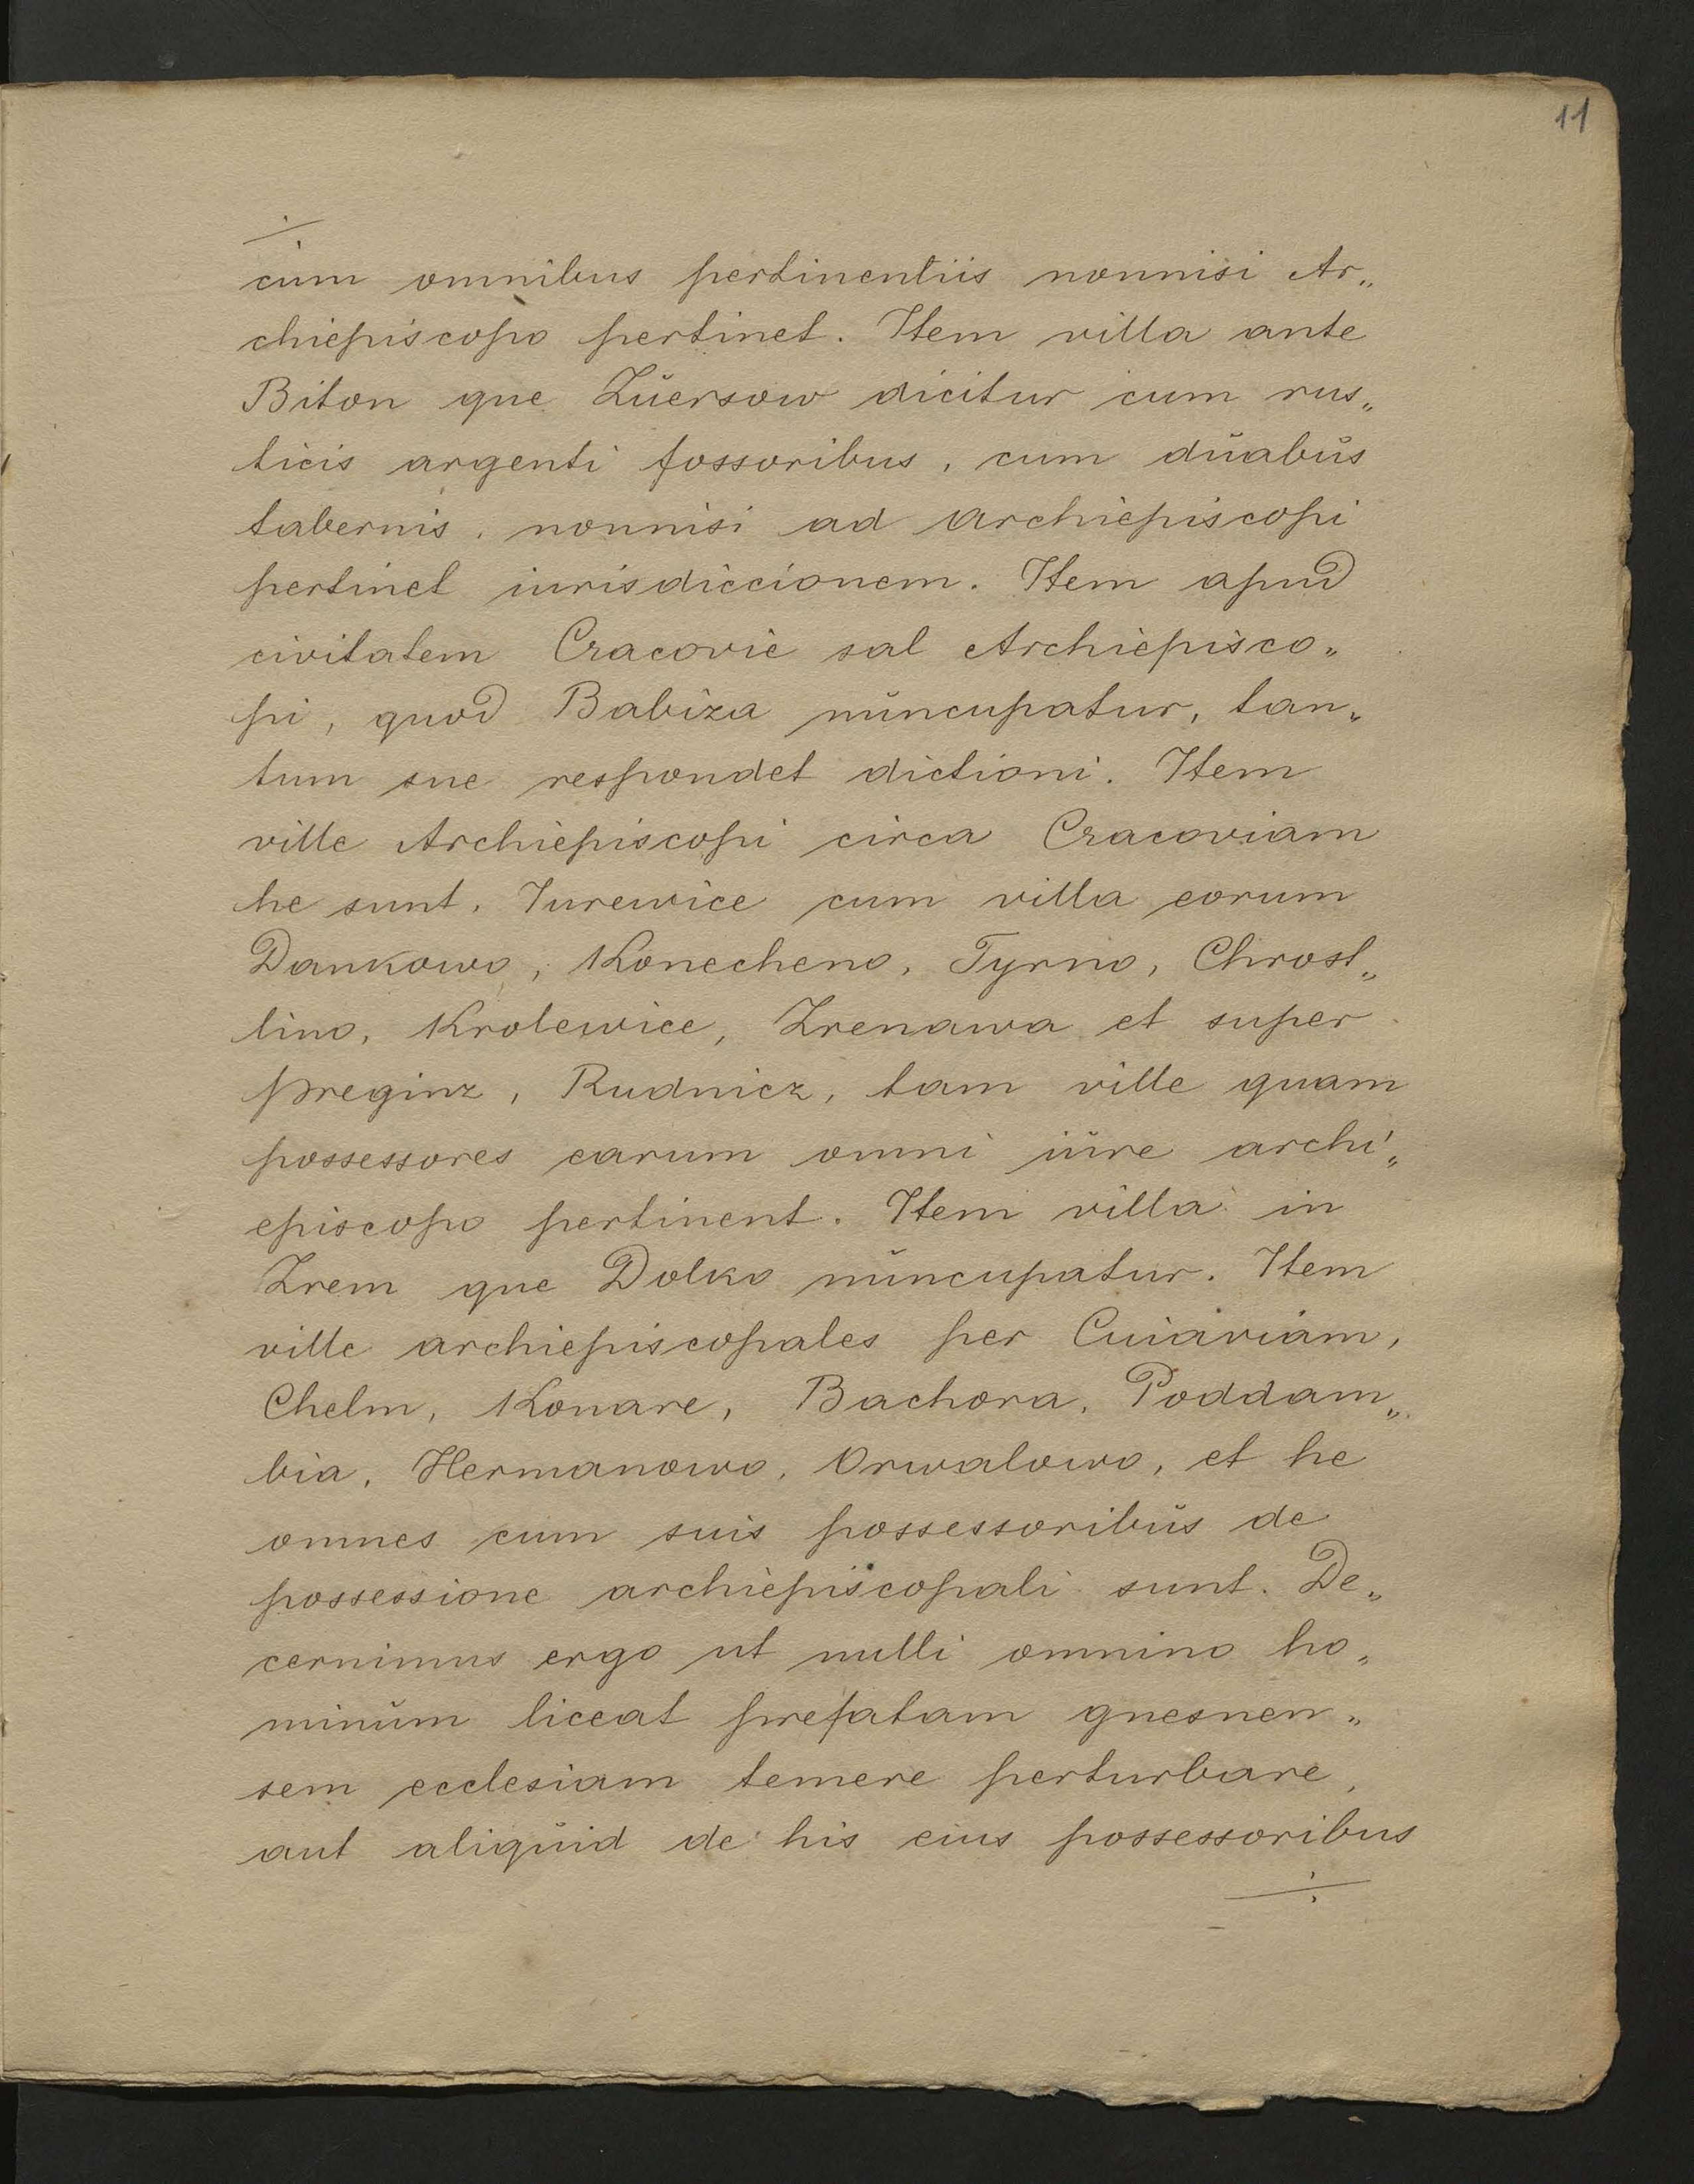 11
cum omnibus pertinentiis nonnisi Ar„
chiepiscopo pertinet. Item villa ante
Biton que Zŭersow dicitur cum rus„
ticis argenti fossoribus, cum dŭabŭs
tabernis, nonnisi ad archiepiscopi
pertinet iurisdiccionem. Item apud
civitatem Cracovie sal Archiepisco„
pi, quod Babiza nŭncupatur, tan„
tum sue respondet dictioni. Item
ville Archiepiscopi circa Cracoviam
he sunt. Iurewice cum villa eorum
Dankowo, Konecheno, Tyrno, Chrost„
lino, Krolewice, Zrenawa et super
preginz, Rudnicz, tam ville quam
possessores earum omni iŭre archi„
episcopo pertinent. Item villa in
Zrem que Dolko nŭncupatur. Item
ville archiepiscopales per Cuiaviam,
Chelm, Konare, Bachora, Poddam„
bia, Hermanowo, Orwalowo, et he
omnes cum suis possessoribŭs de
possessione archiepiscopali sunt. De„
cernimus ergo ut nulli omnino ho„
minŭm liceat prefatam gnesnen„
sem ecclesiam temere perturbare,
aut aliqŭid de his eius possessoribus